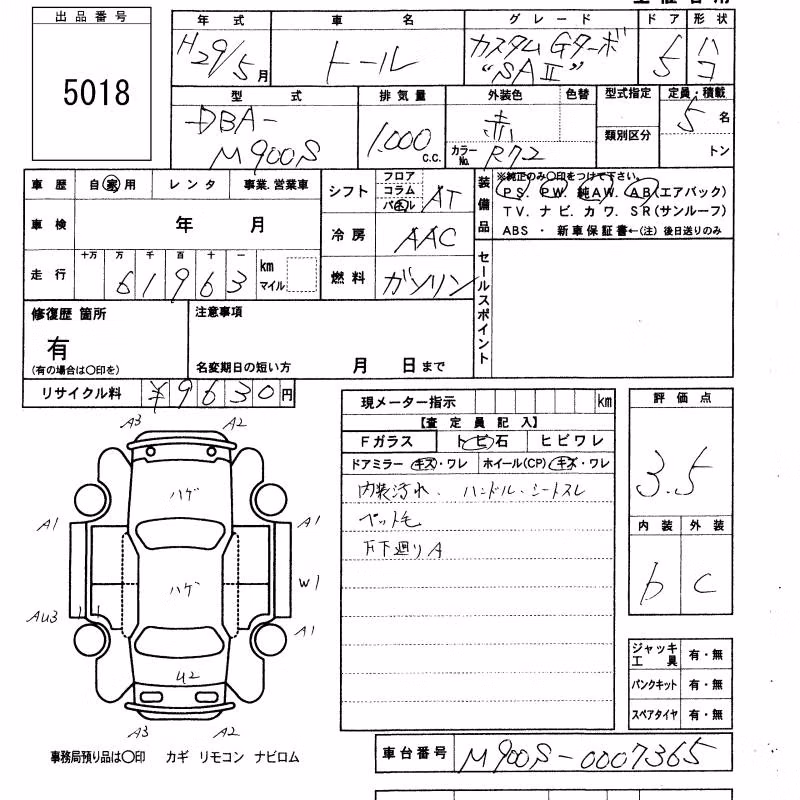 出品番号
5018
年式 車名 グレード ドア 形状
H29/5月 トール カスタムGターボ "SAⅡ" 5 ハコ
型式 排気量 外装色 色替 型式指定 定員・積載
類別区分
DBA-M900S 1,000 C.C. 赤 カラーNo. R72 5名
トン
車歴 自家用 レンタ 事業.営業車
車検 年 月
走行 十万 万 千 百 十 一 km マイル
6 1 9 6 3
シフト フロア コラム パネル AT
冷房 AAC
燃料 ガソリン
装備品 ※純正のみ○印をつけて下さい。
PS. PW. 純AW. AB(エアバック)
TV. ナビ. カワ. SR(サンルーフ)
ABS ・ 新車保証書←(注) 後日送りのみ
セールスポイント
修復歴 箇所 注意事項
有
(有の場合は○印を) 名変期日の短い方 月 日まで
リサイクル料 ¥9630円
現メーター指示 km
【査定員記入】
Fガラス トビ石 ヒビワレ
ドアミラー キズ・ワレ ホイール(CP) キズ・ワレ
内装汚れ. ハンドル・シートスレ
ペット毛
下廻りA
評価点
3.5
内装 外装
b C
ジャッキ工具 有・無
パンクキット 有・無
スペアタイヤ 有・無
A3 A2
ハゲ
A1 A1
ハゲ W1
AU3 A1
U2
A3 A2
事務局預り品は○印 カギ リモコン ナビロム
車台番号 M900S-0007365